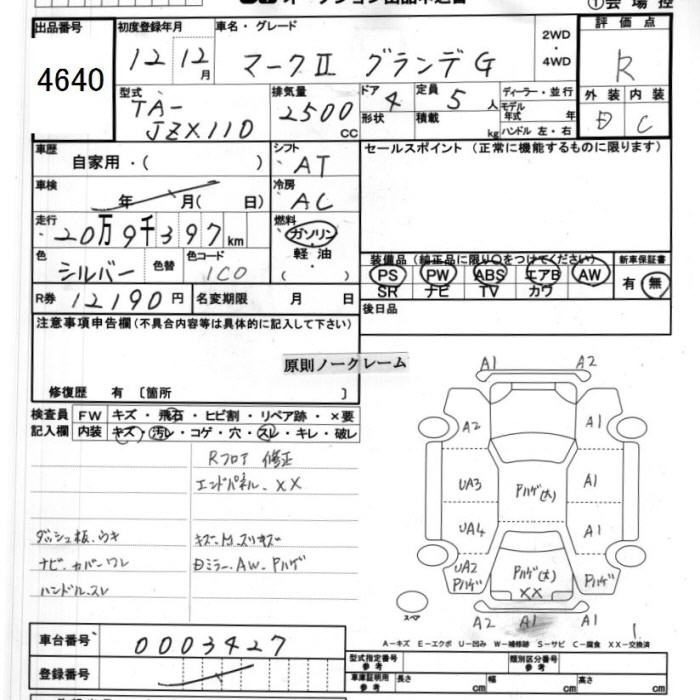 ①会場控
出品番号 初度登録年月 車名・グレード 評価点
4640 12年 12月 マークⅡ グランデG 2WD・4WD R
型式 TA-JZX110 排気量 2500cc ドア 4 定員 5人 ディーラー・並行 外装 内装
形状 積載 kg モデル年式 年 ハンドル 左・右 D C
車歴 自家用・( ) シフト AT セールスポイント (正常に機能するものに限ります)
車検 年 月( 日) 冷房 AC
走行 20万9千397km 燃料 ガソリン・軽油・( )
色 シルバー 色替 色コード 1C0
装備品 (純正品に限り○をつけてください) 新車保証書
PS PW ABS エアB AW 有・無
SR ナビ TV カワ
R券 12190円 名変期限 月 日 後日品
注意事項申告欄 (不具合内容等は具体的に記入して下さい)
原則ノークレーム
修復歴 有 〔箇所 〕
検査員記入欄 FW キズ・飛石・ヒビ割・リペア跡・×要
内装 キズ・汚レ・コゲ・穴・スレ・キレ・破レ
Rフロア 修正
エンドパネル、XX
ダッシュ板、ウキ
ナビ、カバーワレ
ハンドル、スレ
Dミラー、AW、Pハゲ
A1 A2
A2 A1
UA3 Pハゲ(大) A1
UA4 A1
UA2 Pハゲ Pハゲ(大) XX Pハゲ
スペア
A2 A1 A1
A-キズ E-エクボ U-凹み W-補修跡 S-サビ C-腐食 XX-交換済
車台番号 0003427
登録番号
型式指定番号 参考 類別区分番号 参考
車庫証明用 参考 長さ cm 幅 cm 高さ cm